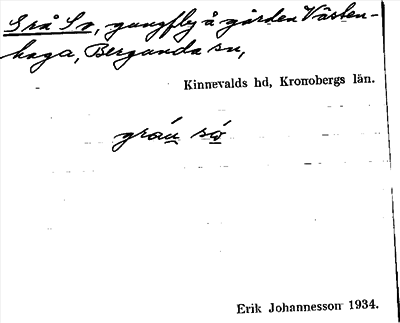 Grå So, gungfly å gården Västen-
haga, Bergunda sn,
Kinnevalds hd, Kronobergs län.
gráu só
Erik Johannesson 1934.